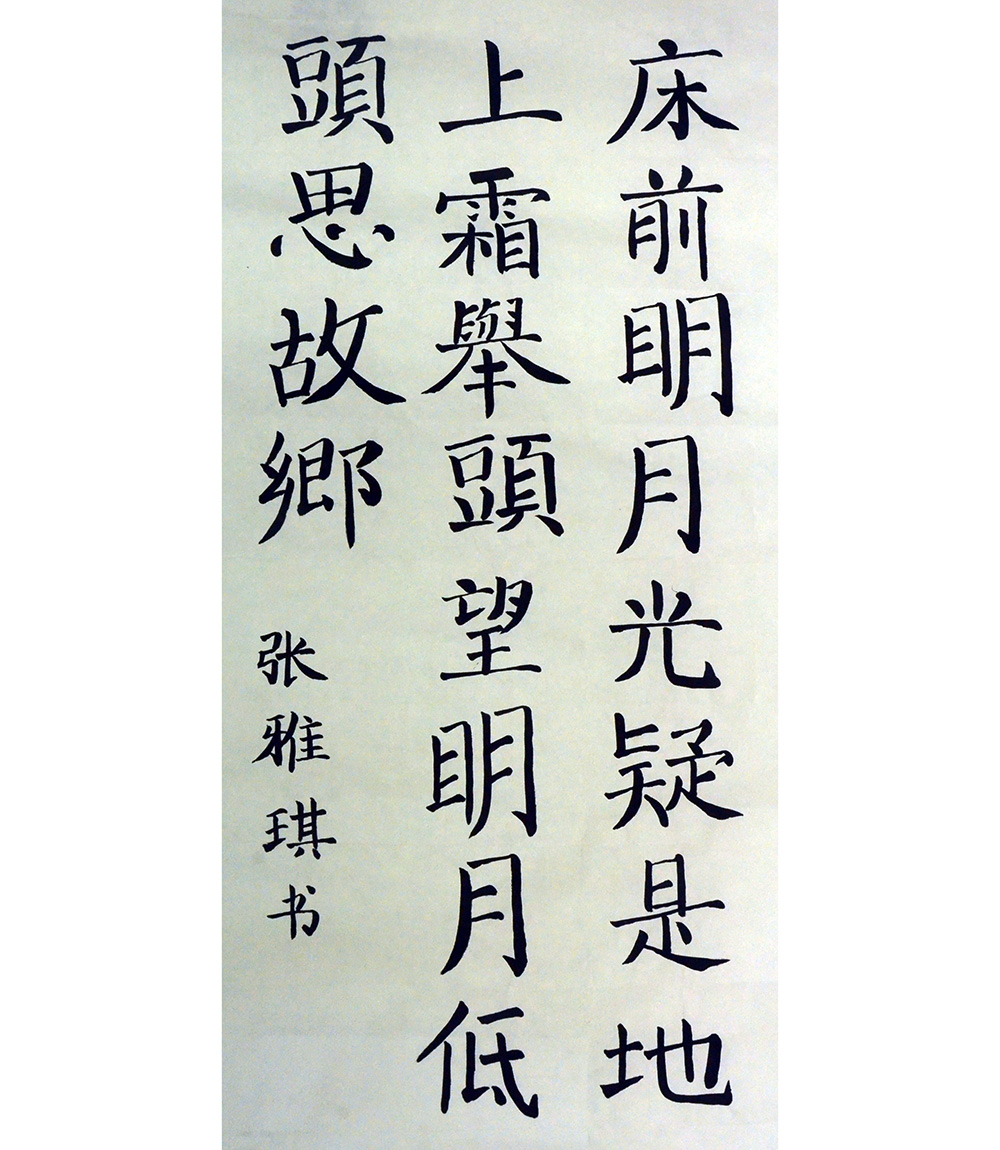 床前明月光疑是地
上霜舉頭望明月低
頭思故鄉
张雅琪书